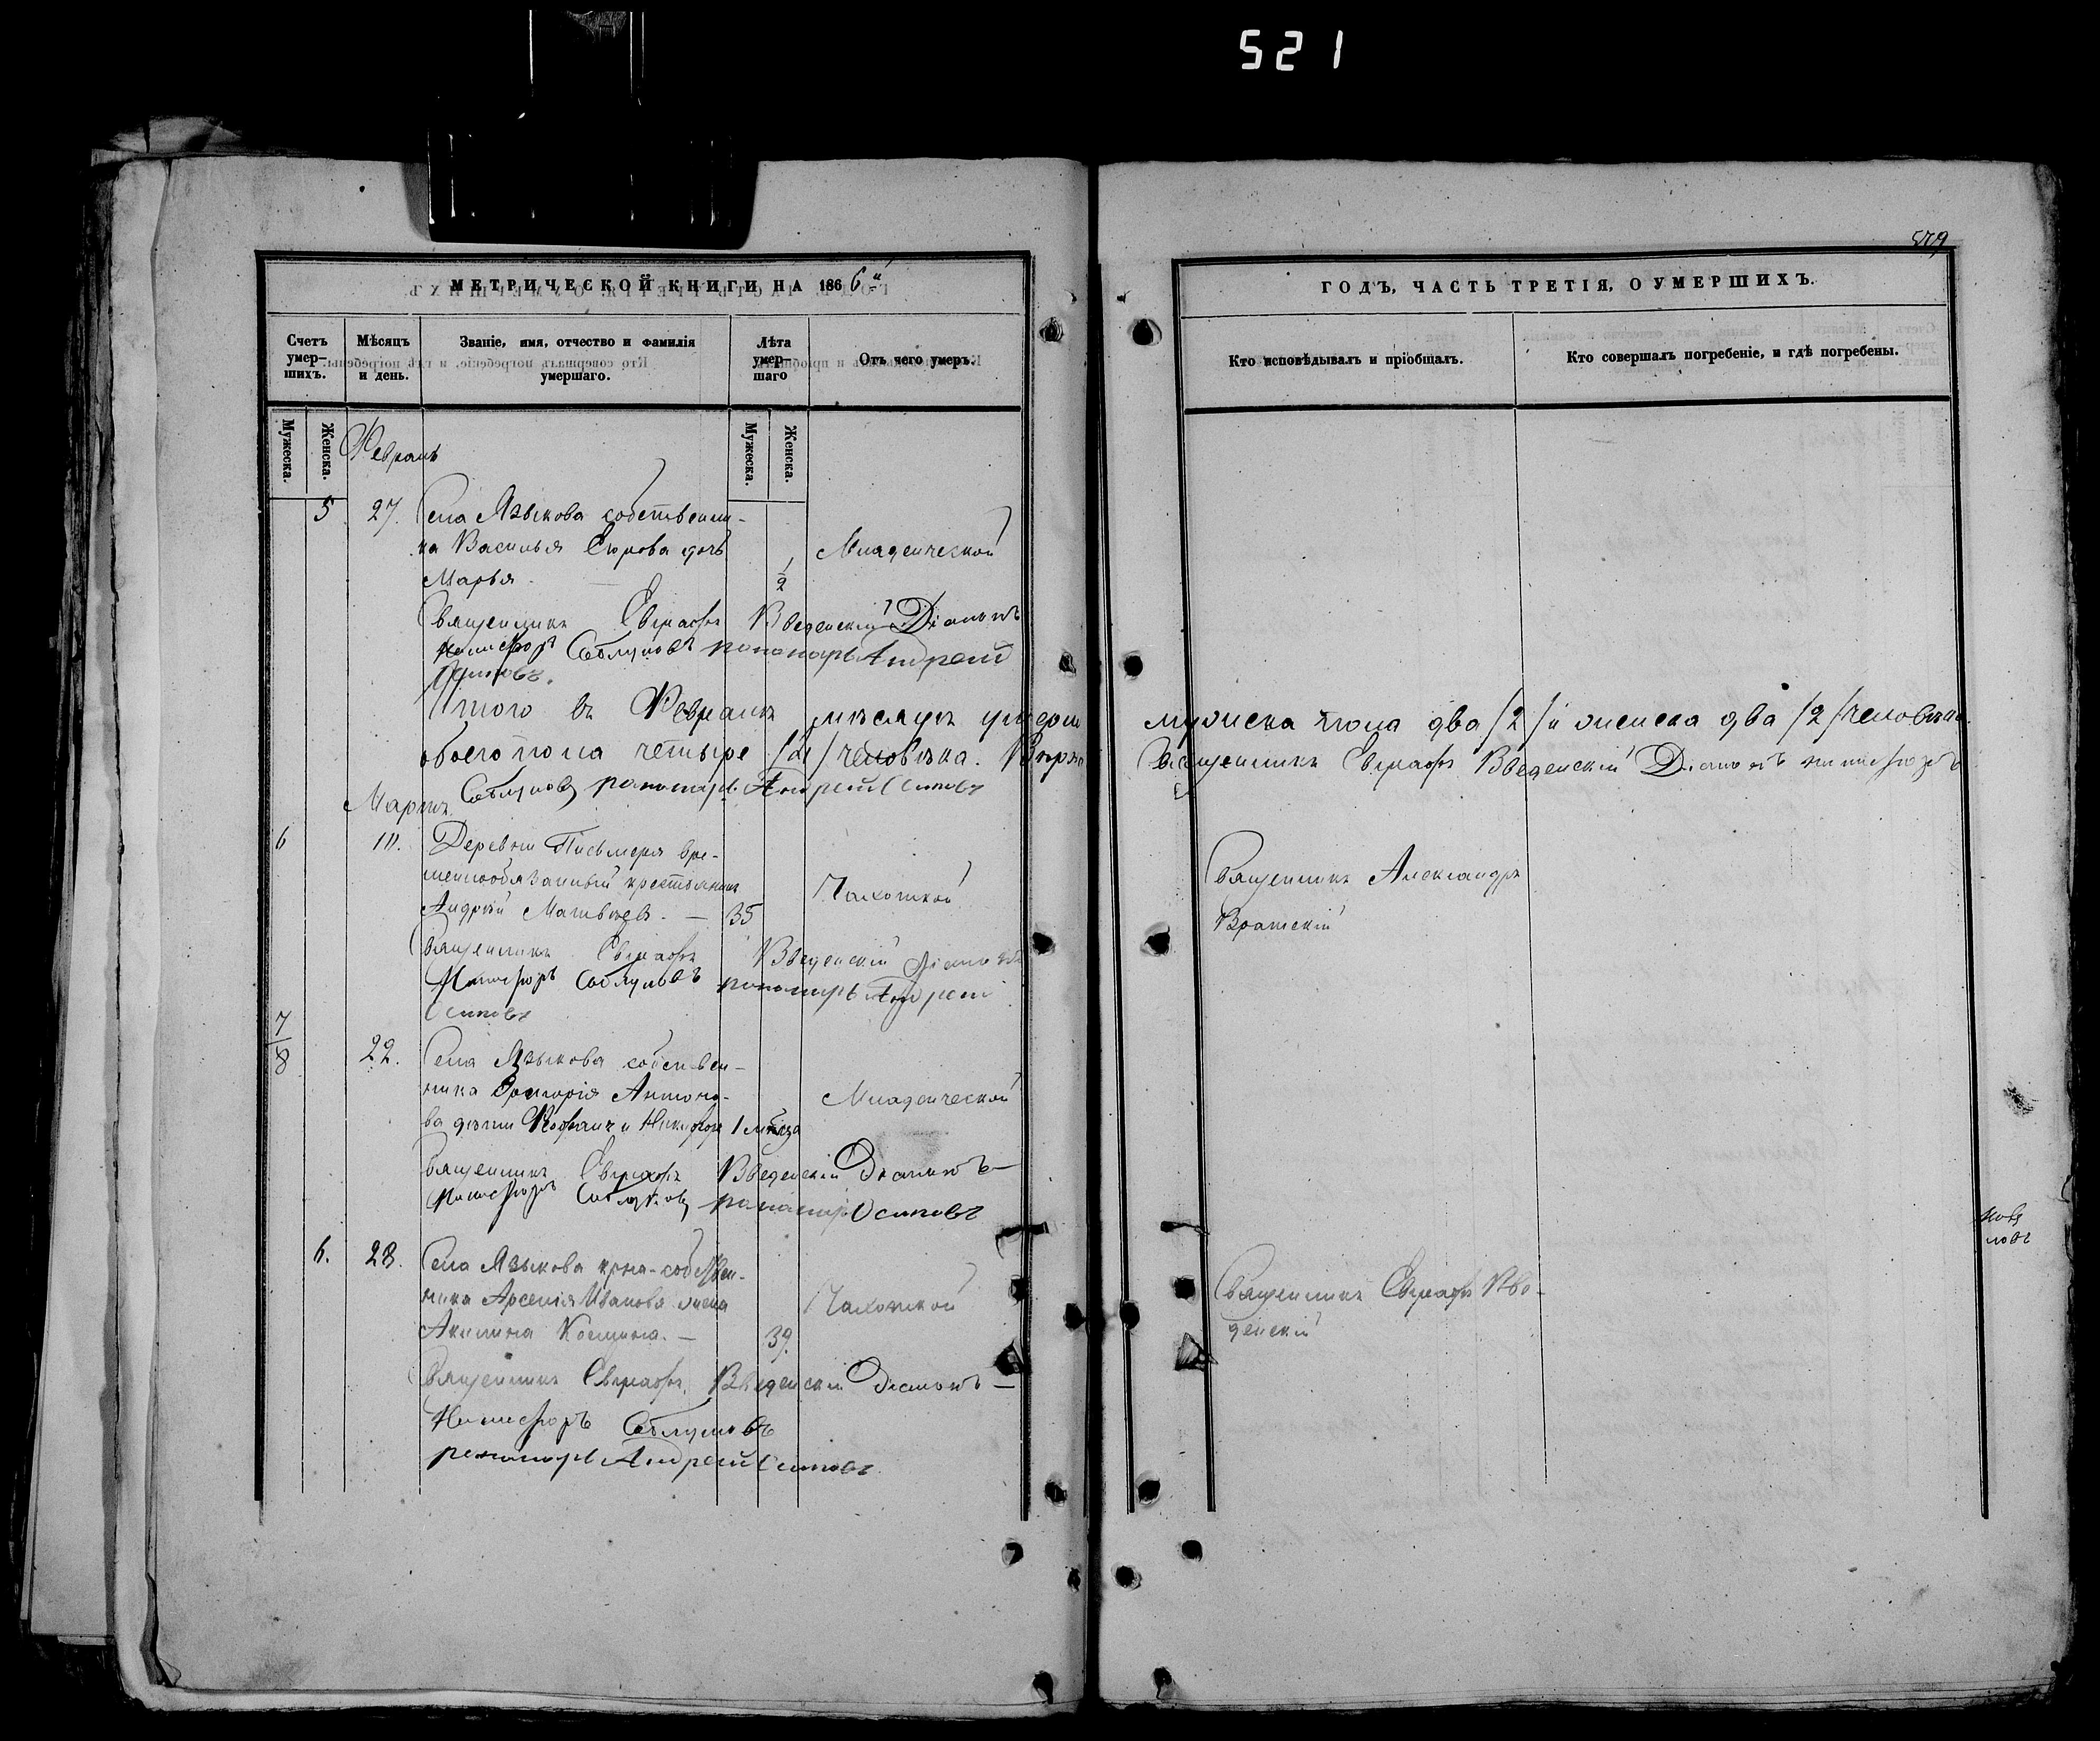 521
579
МЕТРИЧЕСКОЙ КНИГИ НА 1866й
ГОДЪ, ЧАСТЬ ТРЕТІЯ, О УМЕРШИХЪ.
Счетъ умер-шихъ.
Мѣсяцъ и день.
Званіе, имя, отчество и фамилія умершаго.
Лѣта умер-шаго
Отъ чего умеръ.
Кто исповѣдывалъ и пріобщалъ.
Кто совершалъ погребеніе, и гдѣ погребены.
Мужеска.
Женска.
Мужеска.
Женска.
Февраль
5 27. Села Языкова собственни-
ка Василья Егорова дочь
Марья 1/2 Младенческой
Священникъ Евграфъ Введенскій Діаконъ
Никифоръ Саблуковъ пономарь Андрей
Осиповъ.
Итого въ Февралѣ мѣсяцѣ умерш
обоего пола четыре /4/ человѣка.
мужеска пола два /2/ и женска два /2/ человѣка.
Священникъ Евграфъ Введенскій Діаконъ Никифоръ
Саблуковъ пономарь Андрей Осиповъ
Мартъ
6 10. Деревни Письмеря вре-
меннообязанный крестьянинъ
Андрей Матвѣевъ. — 35 Чахоткой
Священникъ Александръ
Братскій
Священникъ Евграфъ Введенскій Діаконъ
Никифоръ Саблуковъ пономарь Андрей
Осиповъ
7/8 22. Села Языкова собствен-
ника Григорія Антоно-
ва дѣти и Никифоръ 1 мѣсяца Младенческой
Священникъ Евграфъ Введенскій Діаконъ
Никифоръ Саблуковъ пономарь Осиповъ
6. 28. Села Языкова крест-собствен-
ника Арсенія Иванова жена
Акилина Козмина. — 39. Чахоткой
Священникъ Евграфъ Вве-
денскій
Священникъ Евграфъ Введенскій Діаконъ
Никифоръ Саблуковъ
пономарь Андрей Осиповъ